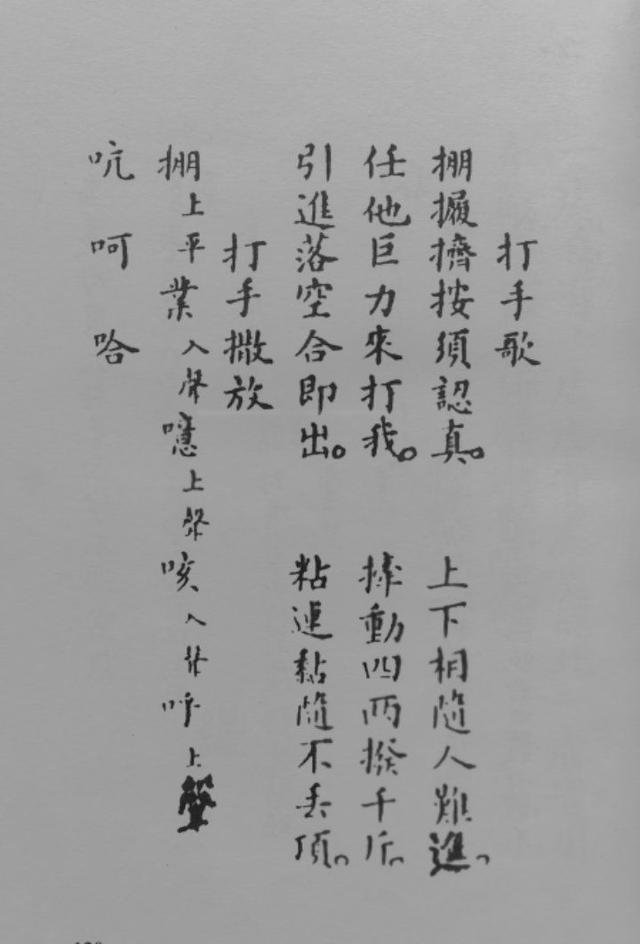 打手歌
掤擠按須認真。 上下相隨人難進、
任他巨力來打我。 動四兩撥千斤、
引進落空合即出。 粘連黏隨不丟頂、
打手撒放
掤上平 業入聲 噫上聲 咳入聲 呼上聲
吭 呵 哈